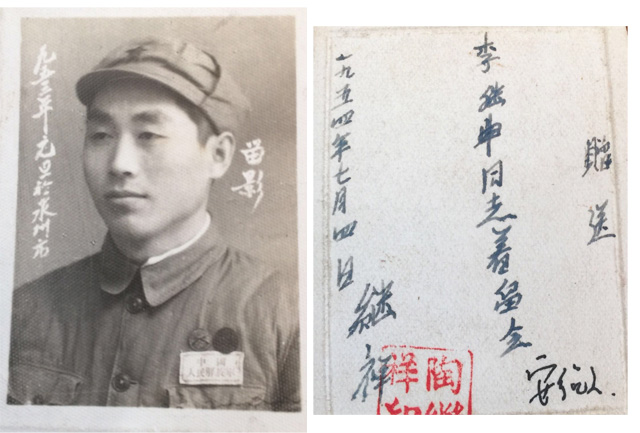 一九五三年元旦於泉州市
留影
中國
人民解放軍
贈送
李继申同志着留念
一九五四年七月四日
继祥
陶
祥
安徽人.